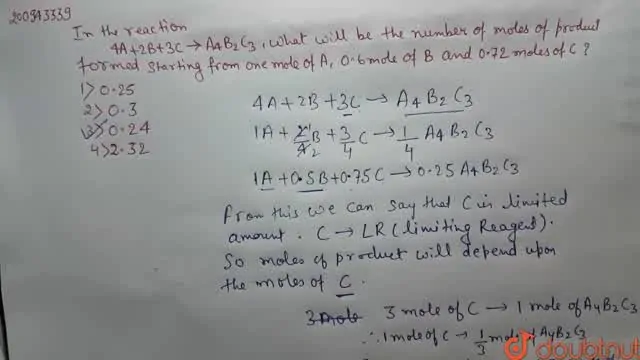 200943339
In the reaction
4A+2B+3C → A4B2C3, What will be the number of moles of product
formed starting from one mole of A, 0.6 mole of B and 0.72 moles of C?
1> 0.25
2> 0.3
3> 0.24
4> 2.32
4A + 2B + 3C → A4 B2 C3
1A + 2/4 1/2 B + 3/4 C → 1/4 A4 B2 C3
1A + 0.5B + 0.75C → 0.25 A4B2C3
From this we can say that C in limited
amount. C → LR (limiting Reagent).
So moles of product will depend upon
the moles of C.
3 mole 3 mole of C → 1 mole of A4B2C3
∴ 1 mole of C → 1/3 mole of A4B2C3
doubtnut